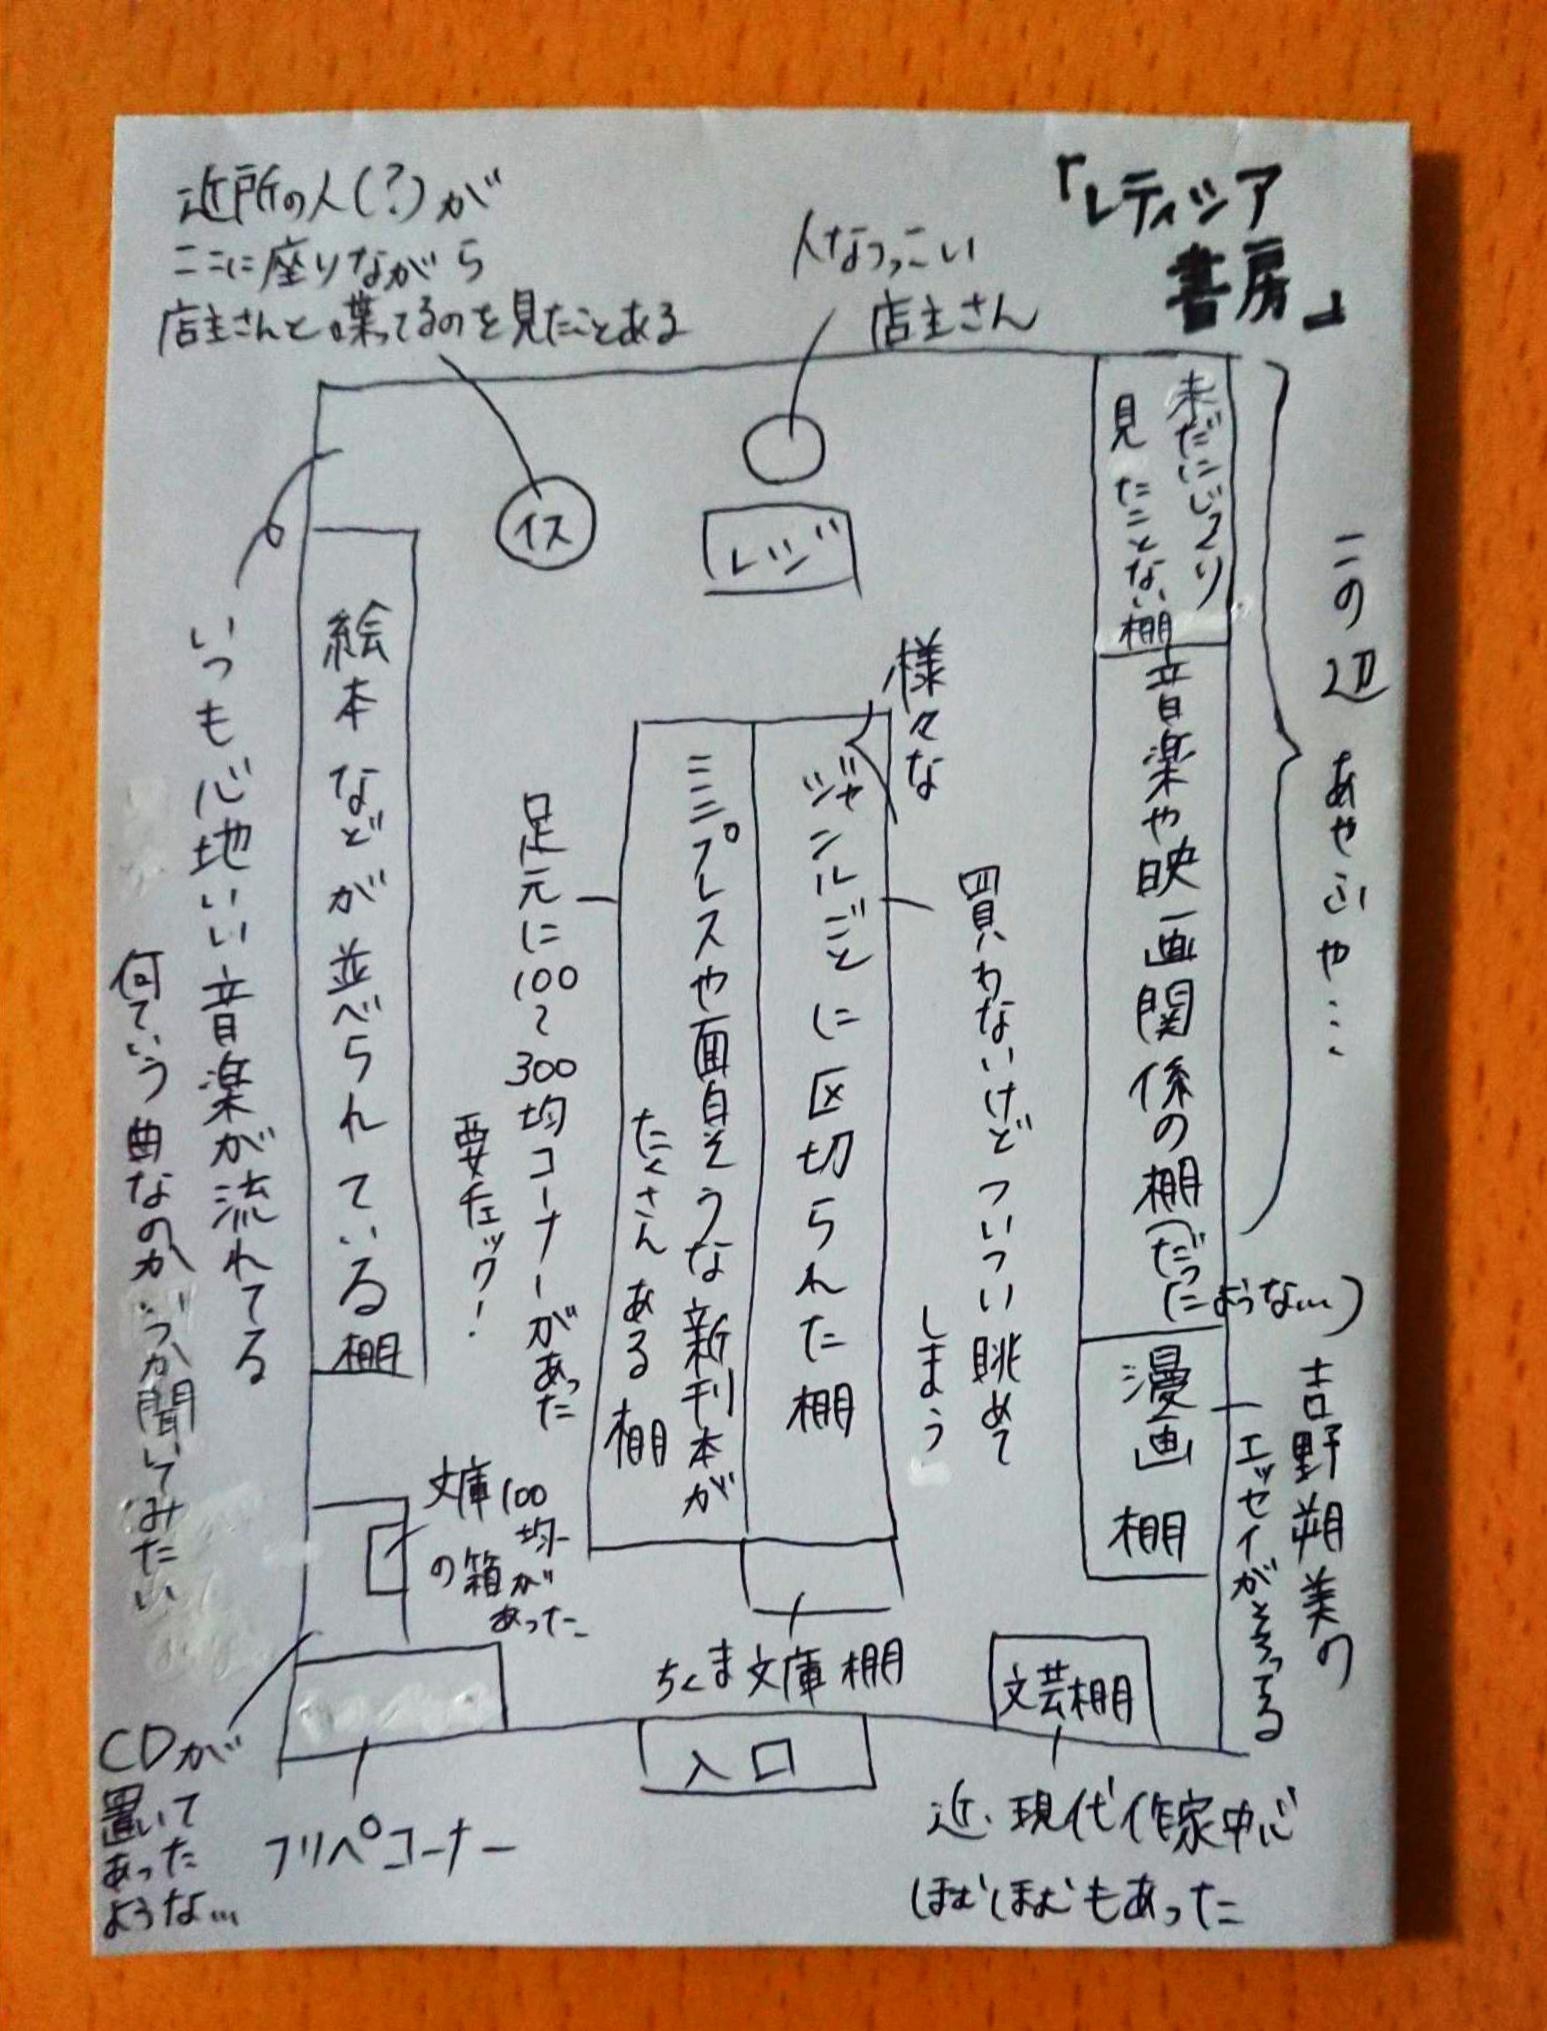 「レティシア
書房」
近所の人(?)が
ここに座りながら
店主さんと喋ってるのを見たことある
人なつっこい
店主さん
イス
レジ
未だにじっくり
見たことない棚
この辺あやふや…
音楽や映画関係の棚(だっ
たような…)
漫画棚
吉野朔美の
エッセイがそろってる
様々な
ジャンルごとに区切られた棚
買わないけどついつい眺めて
しまう
ミニプレスや面白そうな新刊本が
たくさんある棚
足元に100~300均コーナーがあった
要チェック!
絵本などが並べられている棚
いつも心地いい音楽が流れてる
何ていう曲なのかいつか聞いてみたい
文庫100
均
の箱が
あった
ちくま文庫棚
文芸棚
入口
CDが
置いて
あった
ような…
フリペコーナー
近・現代作家中心
ほむほむもあった